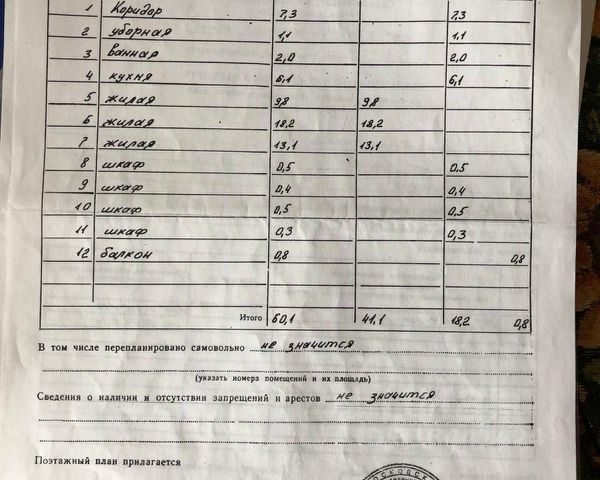 1 Коридор 7,3 7,3
2 уборная 1,1 1,1
3 ванная 2,0 2,0
4 кухня 6,1 6,1
5 жилая 9,8 9,8
6 жилая 18,2 18,2
7 жилая 13,1 13,1
8 шкаф 0,5 0,5
9 шкаф 0,4 0,4
10 шкаф 0,5 0,5
11 шкаф 0,3 0,3
12 балкон 0,8 0,8
Итого 60,1 41,1 18,2 0,8
В том числе перепланировано самовольно не значится
(указать номера помещений и их площадь)
Сведения о наличии и отсутствии запрещений и арестов не значится
Поэтажный план прилагается